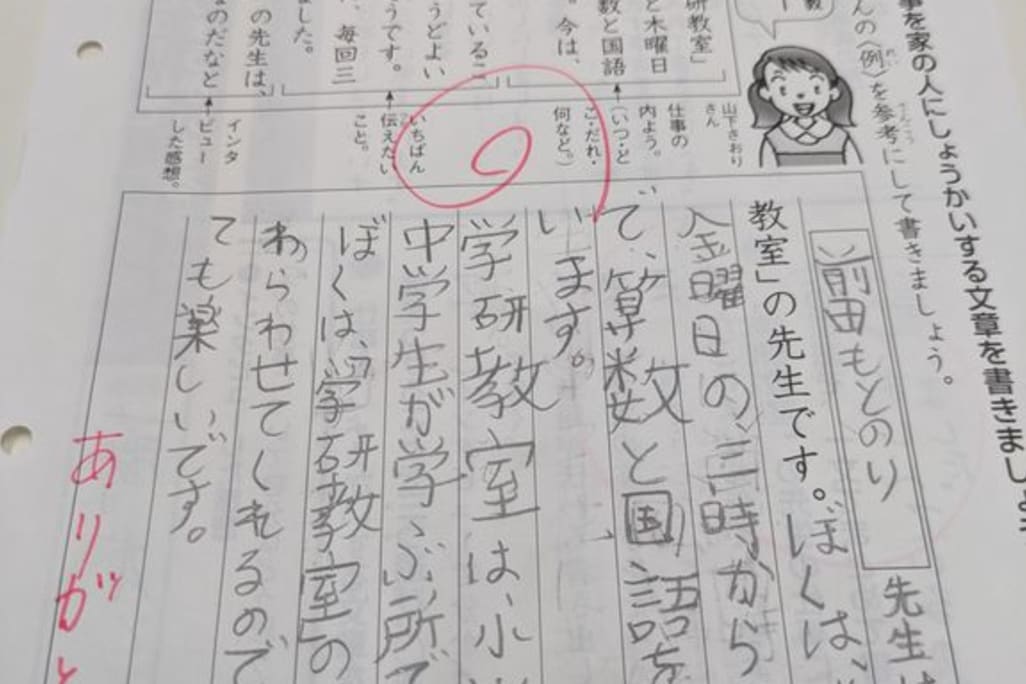 事を家の人にしょうかいする文章を書きまし
んの〈例〉を参考にして書きましょう。
教
研教室」
と木曜日
数と国語
。今は、
ているこ
うどよい
うです。
、毎回三
ました。
の先生は、
なのだなと
山下さおり
さん
仕事の
内よう。
(いつ・ど
こ・だれ・
何など。)
いちばん
伝えたい
こと。
インタ
ビュー
した感想。
前田もとのり 先生は
教室」の先生です。ぼくは、
金曜日の、三時から
で、算数と国語を
います。
学研教室は小
中学生が学ぶ所で
ぼくは、「学研教室」の
わらわせてくれるので
ても楽しいです。
ありがと